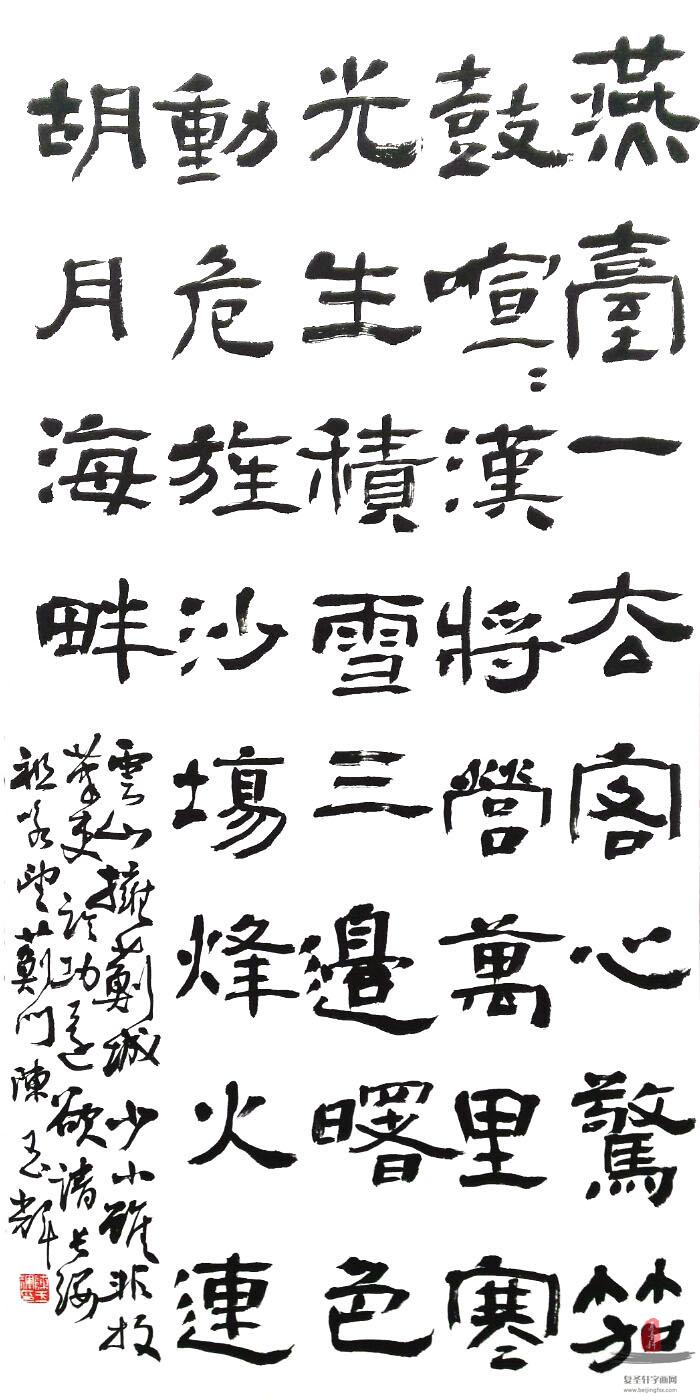 燕臺一去客心驚笳
鼓喧〻漢將營萬里寒
光生積雪三邊曙色
動危旌沙場烽火連
胡月海畔
雲山擁薊城少小雖非投
筆吏論功還欲請長纓
祖咏望薊門陳玉輝
复圣轩字画网
www.beijingfsx.com